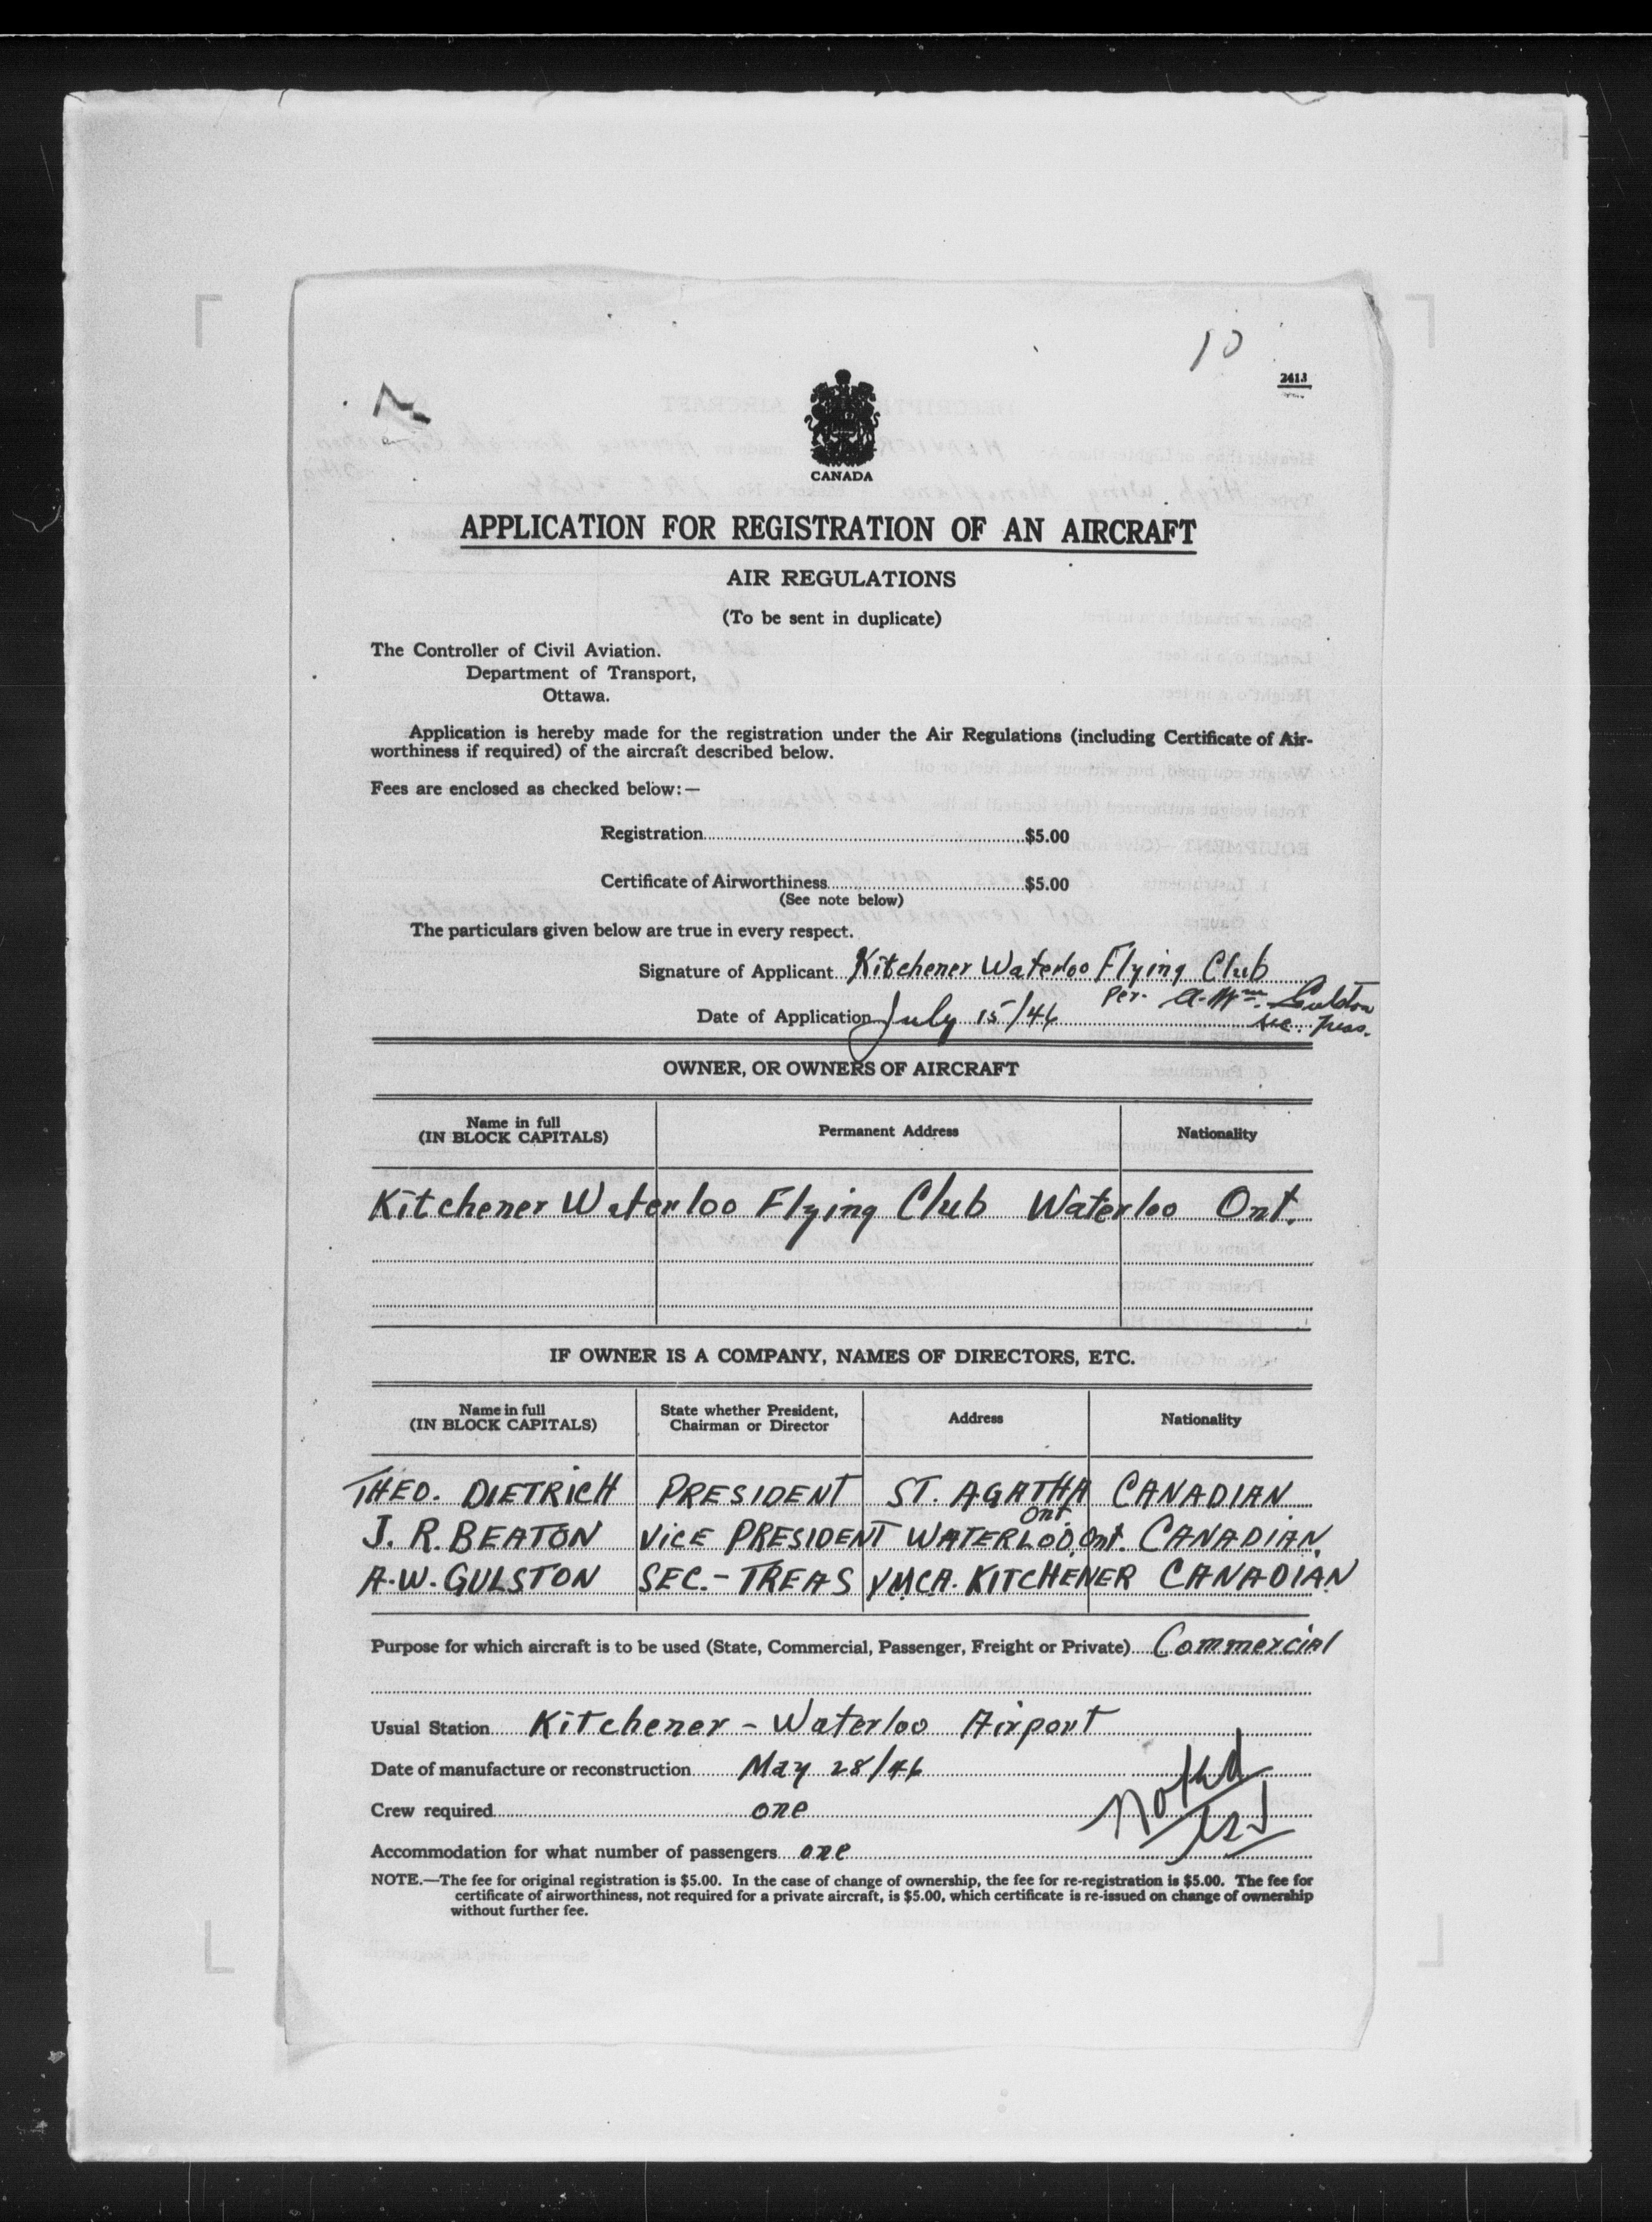 10
2413
CANADA
APPLICATION FOR REGISTRATION OF AN AIRCRAFT
AIR REGULATIONS
(To be sent in duplicate)
The Controller of Civil Aviation.
Department of Transport,
Ottawa.
Application is hereby made for the registration under the Air Regulations (including Certificate of Air-
worthiness if required) of the aircraft described below.
Fees are enclosed as checked below:—
Registration $5.00
Certificate of Airworthiness $5.00
(See note below)
The particulars given below are true in every respect.
Signature of Applicant Kitchener Waterloo Flying Club
Per. A. Wm. Gulston
Date of Application July 15/46
Sec. Treas.
OWNER, OR OWNERS OF AIRCRAFT
Name in full
(IN BLOCK CAPITALS) Permanent Address Nationality
Kitchener Waterloo Flying Club Waterloo Ont.
IF OWNER IS A COMPANY, NAMES OF DIRECTORS, ETC.
Name in full
(IN BLOCK CAPITALS) State whether President,
Chairman or Director Address Nationality
THEO. DIETRICH PRESIDENT ST. AGATHA Ont. CANADIAN
J. R. BEATON VICE PRESIDENT WATERLOO, Ont. CANADIAN
A.W. GULSTON SEC.-TREAS YMCA. KITCHENER CANADIAN
Purpose for which aircraft is to be used (State, Commercial, Passenger, Freight or Private) Commercial
Usual Station Kitchener - Waterloo Airport
Date of manufacture or reconstruction May 28/46
Noted
Crew required one
Accommodation for what number of passengers one
NOTE.—The fee for original registration is $5.00. In the case of change of ownership, the fee for re-registration is $5.00. The fee for
certificate of airworthiness, not required for a private aircraft, is $5.00, which certificate is re-issued on change of ownership
without further fee.